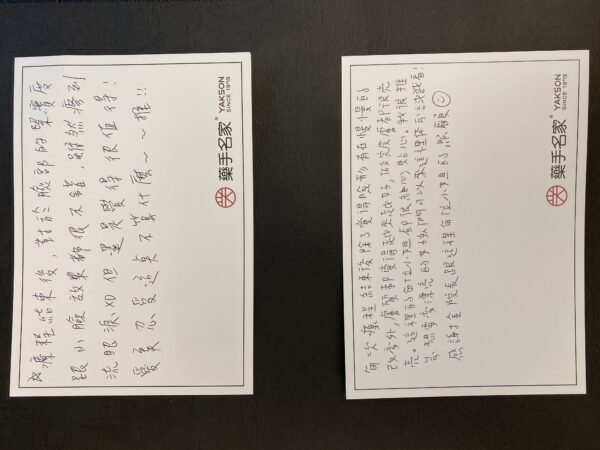 ☆療程結束後，對於臉部的緊實度
跟小臉效果都很不錯，雖然疼到
流眼淚XD但還是覺得很值得！
愛美忍受這點不算什麼～～推!!
藥手名家® YAKSON SINCE 1979
每次療程結束後除了覺得臉形有在慢慢的
改變外，膚質都覺得越來越好，做完皮膚都很亮
亮。這裡的每位小姐都很細心貼心。我很推
想要變漂亮的女孩們可以來這裡體驗看看！
感謝 院長跟這裡每位小姐的照顧☺
藥手名家® YAKSON SINCE 1979